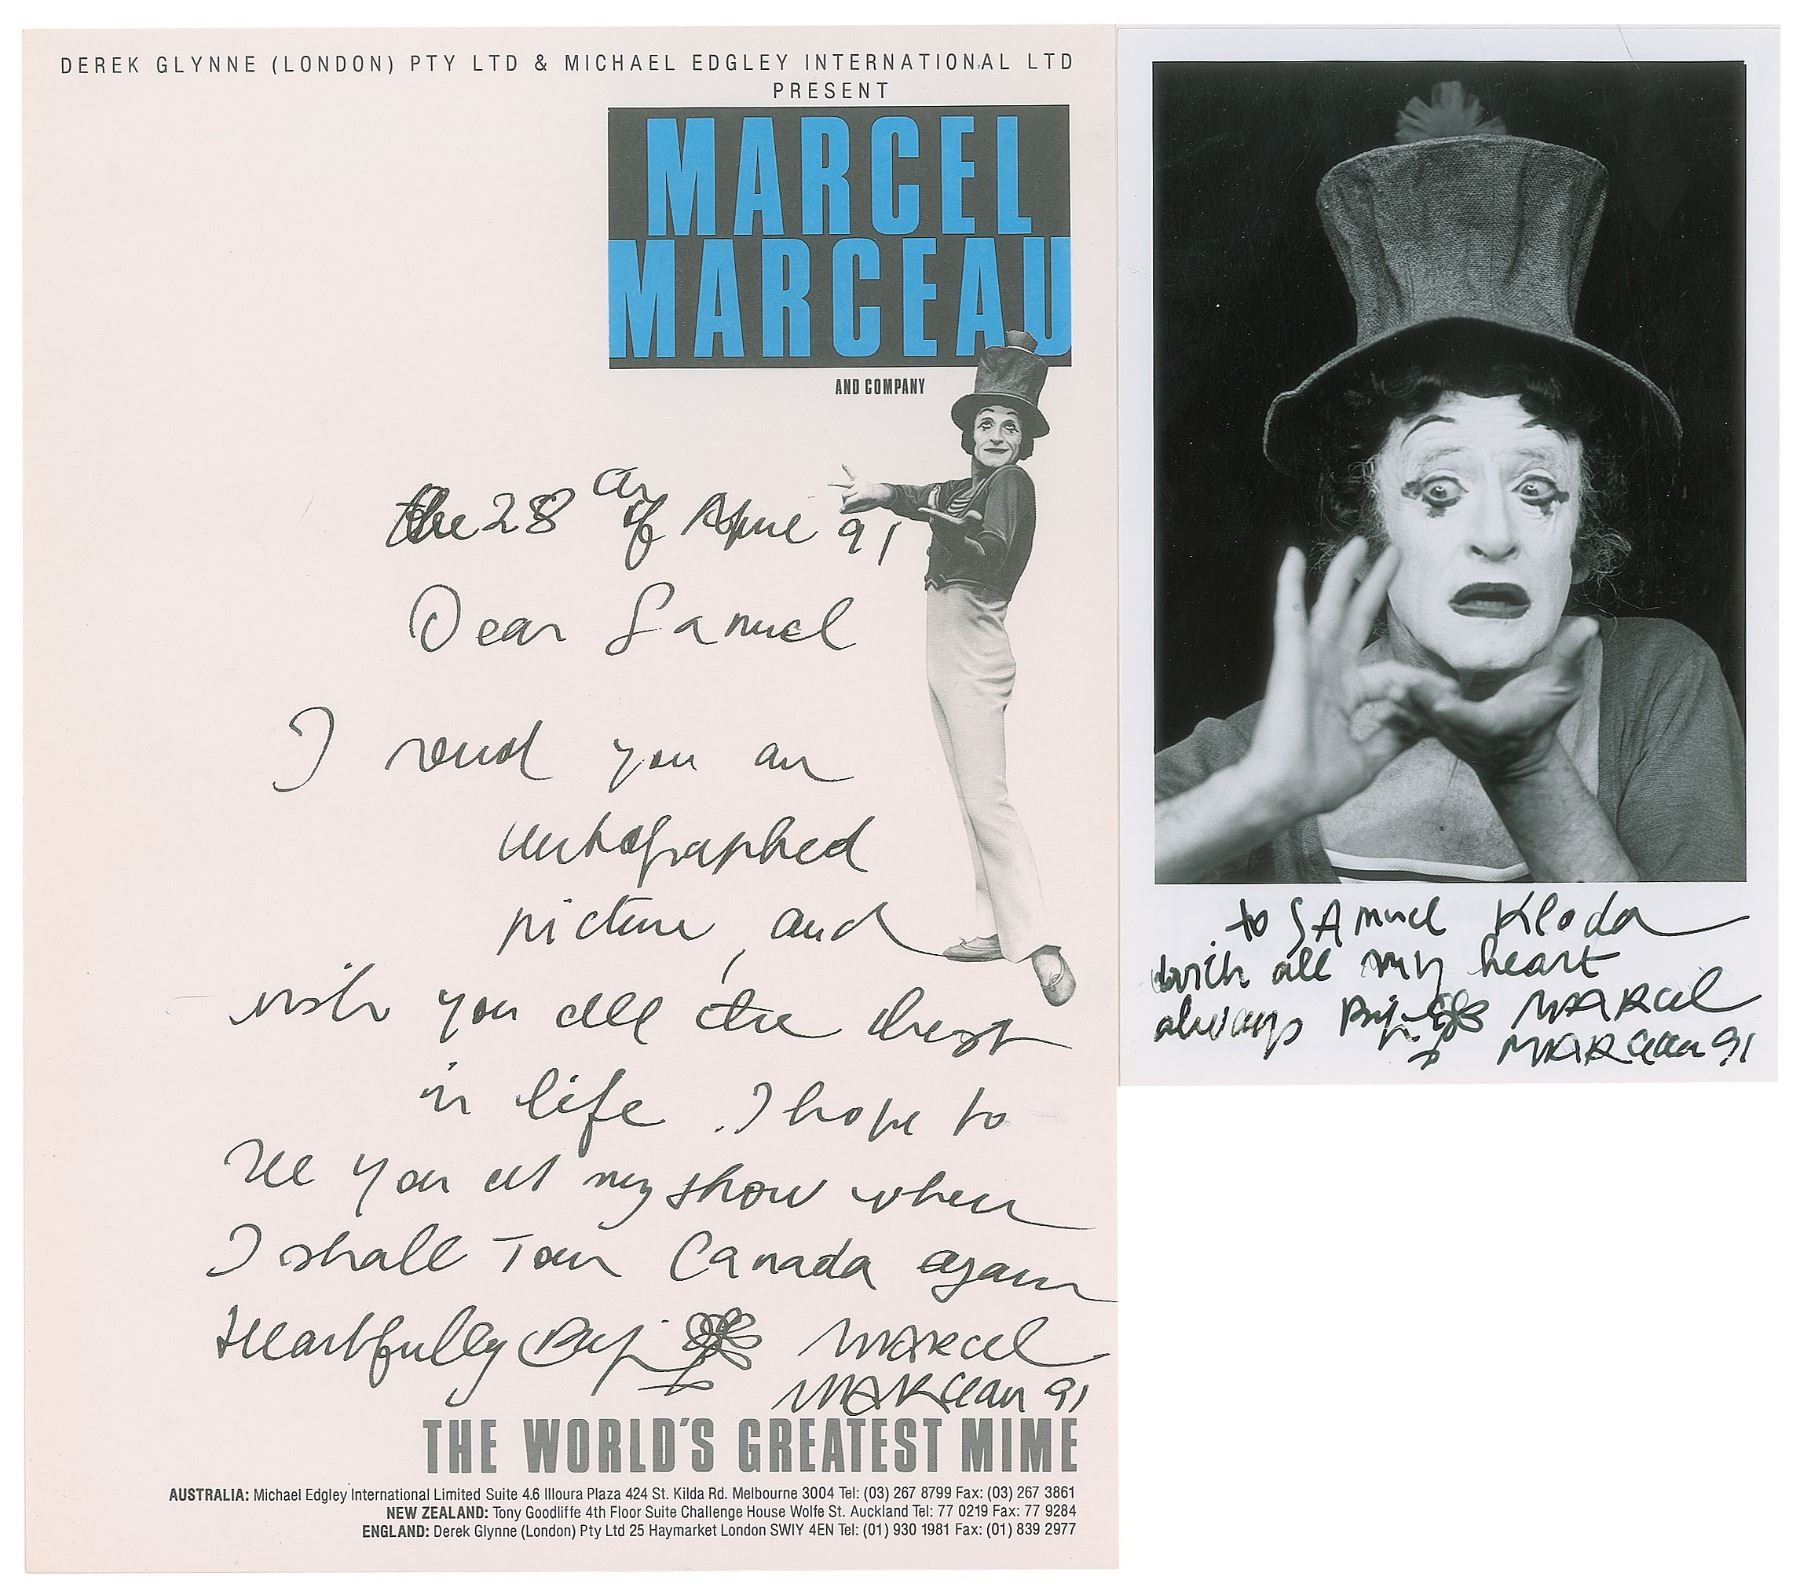 DEREK GLYNNE (LONDON) PTY LTD & MICHAEL EDGLEY INTERNATIONAL LTD
PRESENT
MARCEL
MARCEAU
AND COMPANY
the 28 of April 91
Dear Samuel
I send you an
autographed
picture, and
wish you all the best
in life. I hope to
see you at my show when
I shall Tour Canada again
Heartfully Bip MARCEL
MARCEAU 91
THE WORLD'S GREATEST MIME
AUSTRALIA: Michael Edgley International Limited Suite 4.6 Illoura Plaza 424 St. Kilda Rd. Melbourne 3004 Tel: (03) 267 8799 Fax: (03) 267 3861
NEW ZEALAND: Tony Goodliffe 4th Floor Suite Challenge House Wolfe St. Auckland Tel: 77 0219 Fax: 77 9284
ENGLAND: Derek Glynne (London) Pty Ltd 25 Haymarket London SW1Y 4EN Tel: (01) 930 1981 Fax: (01) 839 2977
to SAmuel Kloda
with all my heart
always Bip MARCEL
MARCEAU 91